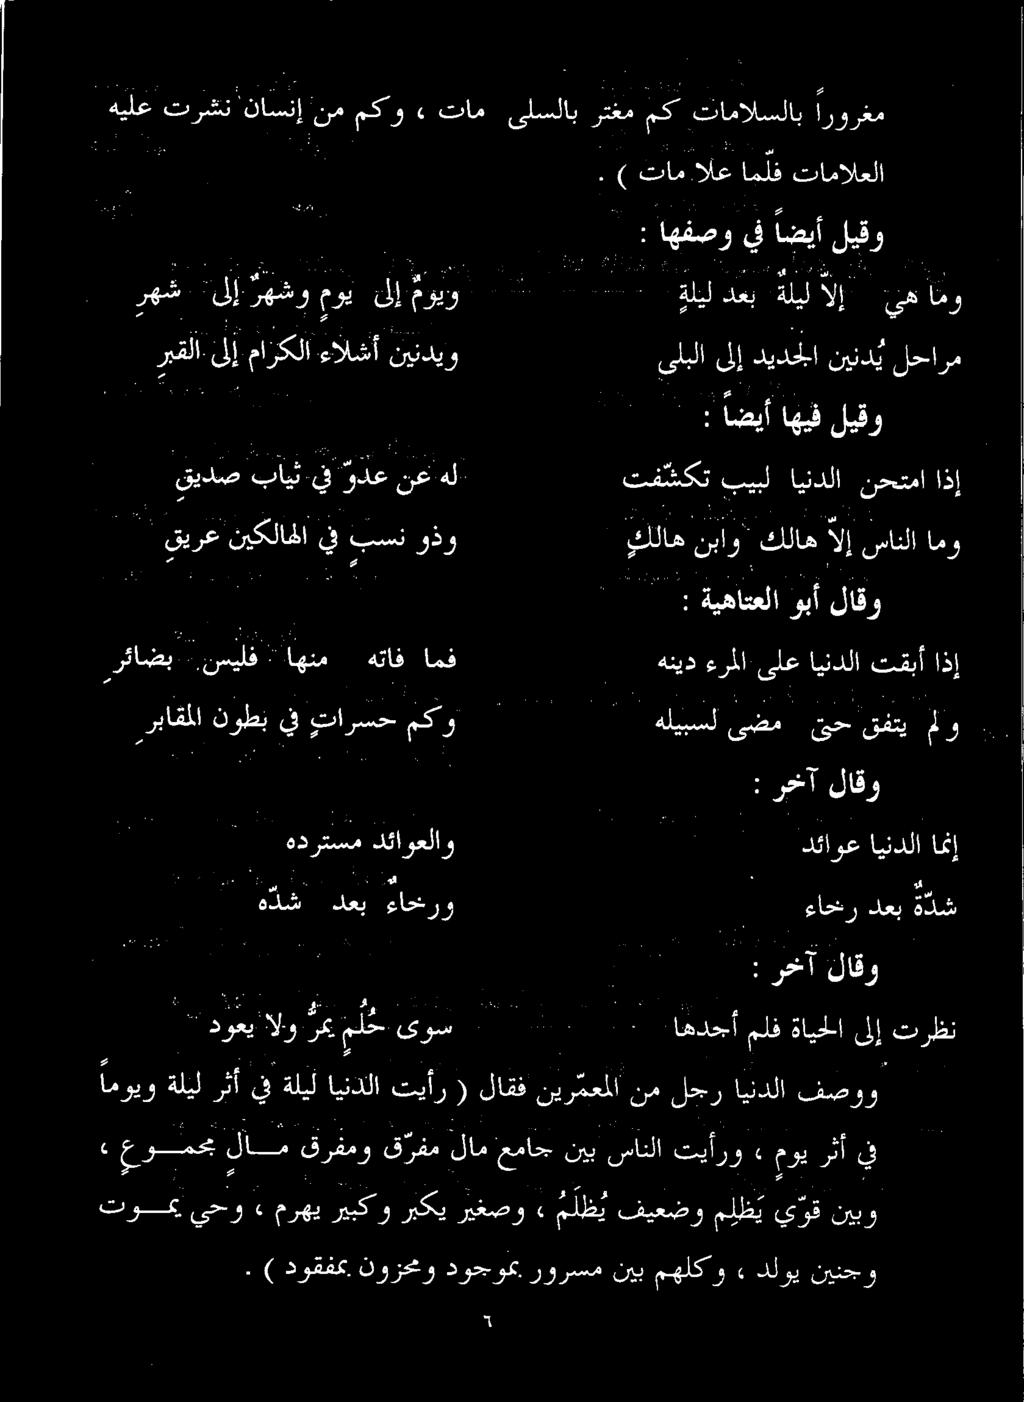 مغروراً بالسلامات كم مغتر بالسلى مات ، وكم من إنسان نشرت عليه
العلامات فلّما علا مات ) .
وقيل أيضاً في وصفها :
وما هي إلاّ ليلةٌ بعد ليلةٍ ويومٌ إلى يومٍ وشهرٌ إلى شهرِ
مراحل يُدنين الجديد إلى البلى ويدنين أشلاء الكرام إلى القبرِ
وقيل فيها أيضاً :
إذا امتحن الدنيا لبيب تكشّفت له عن عدوّ في ثياب صديقِ
وما الناس إلاّ هالك وابن هالكٍ وذو نسبٍ في الهالكين عريقِ
وقال أبو العتاهية :
إذا أبقت الدنيا على المرء دينه فما فاته منها فليس بضائرِ
ولم يتفق حتى مضى لسبيله وكم حسراتٍ في بطون المقابرِ
وقال آخر :
إنما الدنيا عوائد والعوائد مسترده
شدّةٌ بعد رخاء ورخاءٌ بعد شدّه
وقال آخر :
نظرت إلى الحياة فلم أجدها سوى حُلُمٍ يمرُّ ولا يعود
ووصف الدنيا رجل من المعمّرين فقال ( رأيت الدنيا ليلة في أثر ليلة ويوماً
في أثر يومٍ ، ورأيت الناس بين جامع مال مفرّق ومفرق مـال مجمـوعٍ ،
وبين قوّي يَظلِم وضعيف يُظلَمُ ، وصغير يكبر وكبير يهرم ، وحي يمـوت
وجنين يولد ، وكلهم بين مسرور بموجود ومحزون بمفقود ) .
٦